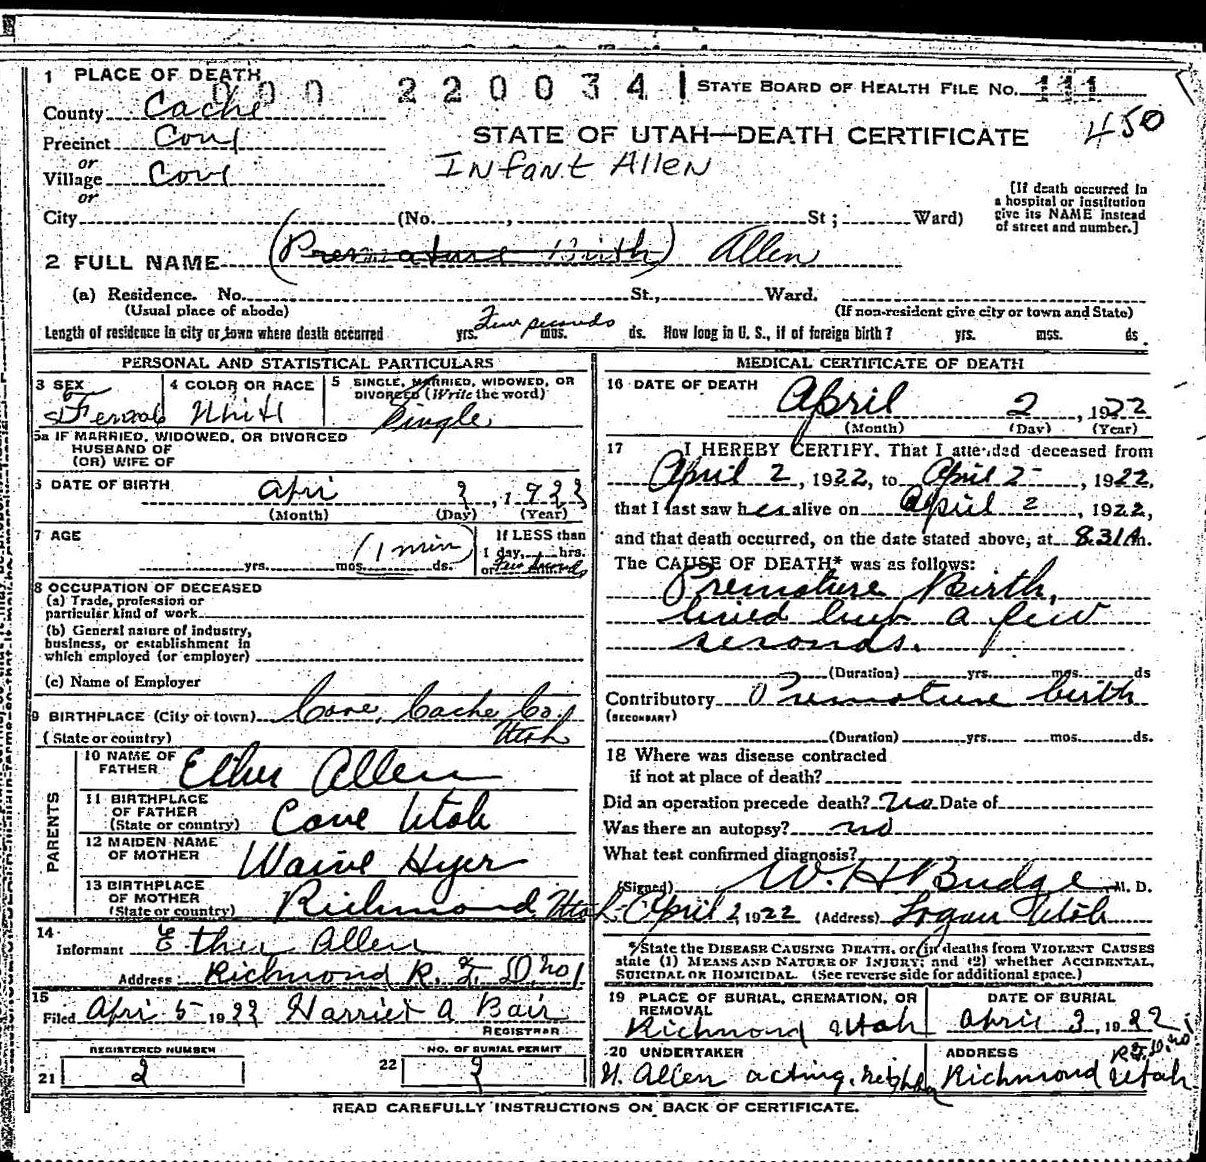 1 PLACE OF DEATH
000 220034 1 STATE BOARD OF HEALTH FILE No. 111
County Cache
450
Precinct Cove
STATE OF UTAH—DEATH CERTIFICATE
or
Village Cove
Infant Allen
or
[If death occurred in a hospital or institution give its NAME instead of street and number.]
City (No. , St ; Ward)
2 FULL NAME (Premature Birth) Allen
(a) Residence. No. St., Ward.
(Usual place of abode) (If non-resident give city or town and State)
Length of residence in city or town where death occurred yrs. Few seconds mos. ds. How long in U. S., if of foreign birth? yrs. mos. ds.
PERSONAL AND STATISTICAL PARTICULARS
3 SEX Female
4 COLOR OR RACE White
5 SINGLE, MARRIED, WIDOWED, OR DIVORCED (Write the word) Single
5a IF MARRIED, WIDOWED, OR DIVORCED
HUSBAND OF
(OR) WIFE OF
6 DATE OF BIRTH
Apri 2, 1922
(Month) (Day) (Year)
7 AGE
yrs. mos. (1 min) ds.
If LESS than
1 day, hrs.
or Few Seconds
8 OCCUPATION OF DECEASED
(a) Trade, profession or
particular kind of work
(b) General nature of industry,
business, or establishment in
which employed (or employer)
(c) Name of Employer
9 BIRTHPLACE (City or town) Cove, Cache Co.
(State or country) Utah
PARENTS
10 NAME OF FATHER Ether Allen
11 BIRTHPLACE OF FATHER (State or country) Cove Utah
12 MAIDEN NAME OF MOTHER Waive Hyer
13 BIRTHPLACE OF MOTHER (State or country) Richmond Utah
14 Informant Ether Allen
Address Richmond R. F. D. no 1
15 Filed Apri 5 1922 Harriet A Bair
REGISTRAR
REGISTERED NUMBER
21 2
NO. OF BURIAL PERMIT
22 2
MEDICAL CERTIFICATE OF DEATH
16 DATE OF DEATH
April 2, 1922
(Month) (Day) (Year)
17 I HEREBY CERTIFY, That I attended deceased from
April 2, 1922, to April 2, 1922,
that I last saw her alive on April 2, 1922,
and that death occurred, on the date stated above, at 8.31 A m.
The CAUSE OF DEATH* was as follows:
Premature Birth,
lived but a few
seconds.
(Duration) yrs. mos. ds
Contributory Premature birth
(SECONDARY)
(Duration) yrs. mos. ds.
18 Where was disease contracted
if not at place of death?
Did an operation precede death? no Date of
Was there an autopsy? no
What test confirmed diagnosis?
(Signed) W. H Budge M. D.
April 2 1922 (Address) Logan Utah
*State the DISEASE CAUSING DEATH, or in deaths from VIOLENT CAUSES
state (1) MEANS AND NATURE OF INJURY; and (2) whether ACCIDENTAL,
SUICIDAL OR HOMICIDAL. (See reverse side for additional space.)
19 PLACE OF BURIAL, CREMATION, OR REMOVAL
Richmond Utah
DATE OF BURIAL
April 3, 1922
20 UNDERTAKER
H. Allen acting.
ADDRESS R. F. D. no 1
Richmond Utah
READ CAREFULLY INSTRUCTIONS ON BACK OF CERTIFICATE.